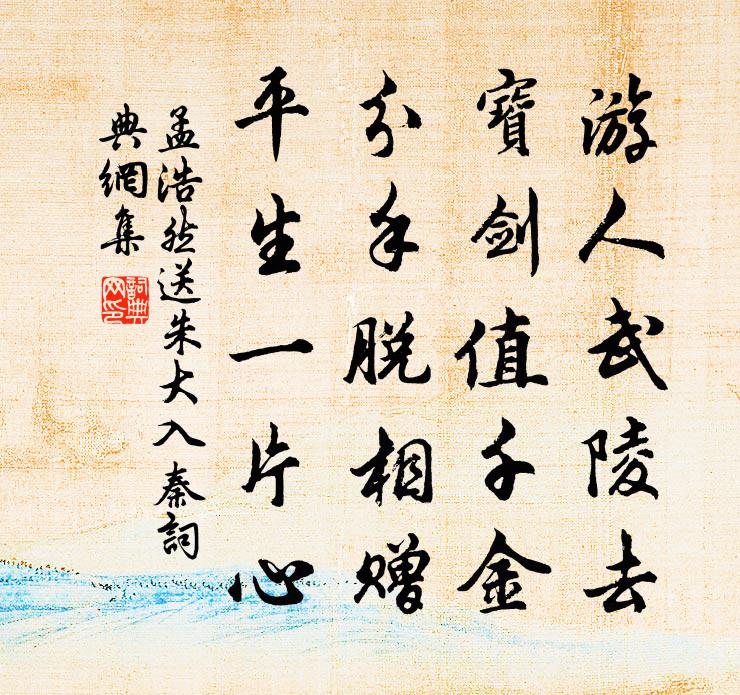 游人武陵去
寶剑值千金
分手脱相赠
平生一片心
孟浩然送朱大入秦詞
典網集
詞典
网印